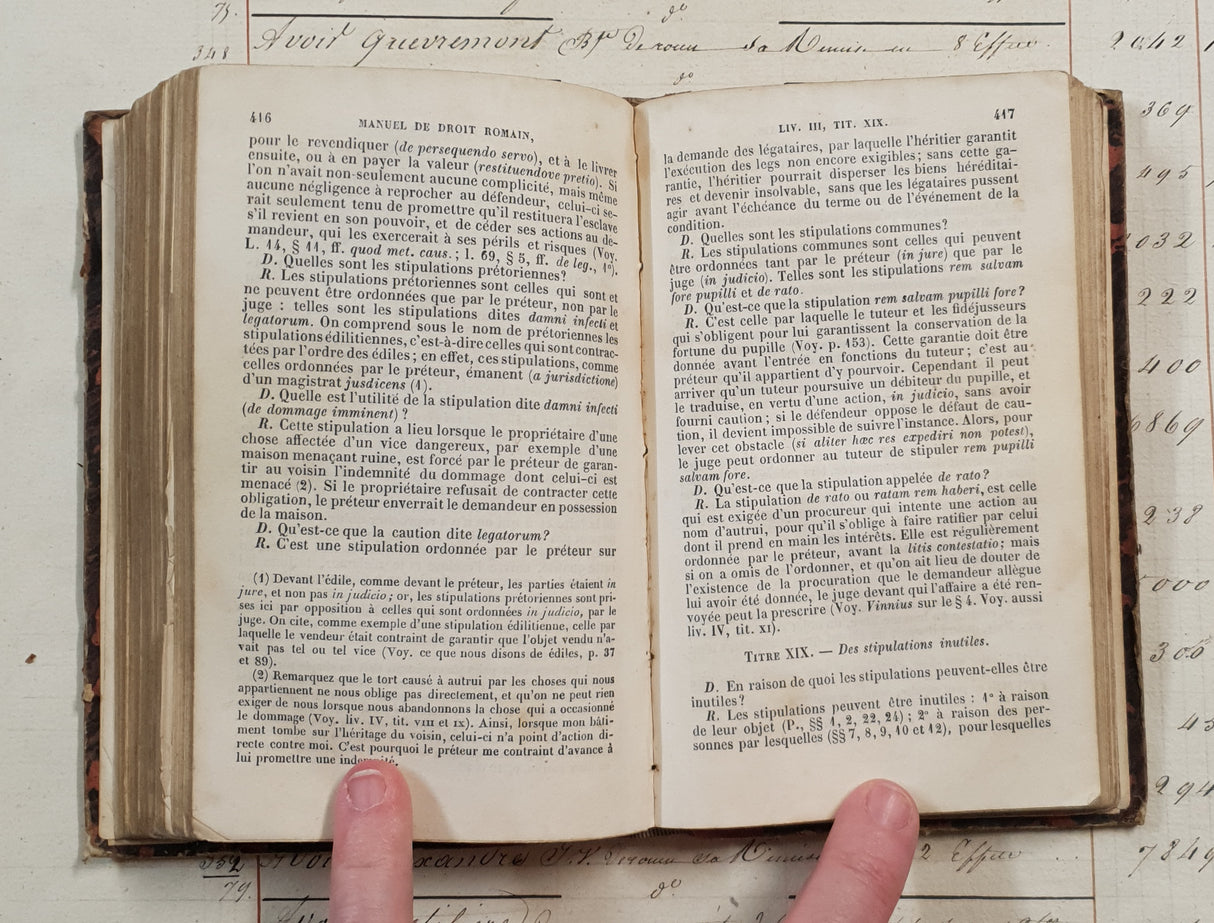 75.
348
Avoir Quevremont
sa Remise en 8 Effets
2042
369
495
032
222
400
6869
238
000
300
45
294
7849
416
MANUEL DE DROIT ROMAIN,
pour le revendiquer (de persequendo servo), et à le livrer
ensuite, ou à en payer la valeur (restituendove pretio). Si
l'on n'avait non-seulement aucune complicité, mais même
aucune négligence à reprocher au défendeur, celui-ci se-
rait seulement tenu de promettre qu'il restituera l'esclave
s'il revient en son pouvoir, et de céder ses actions au de-
mandeur, qui les exercerait à ses périls et risques (Voy.
L. 14, § 11, ff. quod met. caus. ; l. 69, § 5, ff. de leg., 1°).
D. Quelles sont les stipulations prétoriennes?
R. Les stipulations prétoriennes sont celles qui sont et
ne peuvent être ordonnées que par le préteur, non par le
juge : telles sont les stipulations dites damni infecti et
legatorum. On comprend sous le nom de prétoriennes les
stipulations édilitiennes, c'est-à-dire celles qui sont contrac-
tées par l'ordre des édiles ; en effet, ces stipulations, comme
celles ordonnées par le préteur, émanent (a jurisdictione)
d'un magistrat jusdicens (1).
D. Quelle est l'utilité de la stipulation dite damni infecti
(de dommage imminent) ?
R. Cette stipulation a lieu lorsque le propriétaire d'une
chose affectée d'un vice dangereux, par exemple d'une
maison menaçant ruine, est forcé par le préteur de garan-
tir au voisin l'indemnité du dommage dont celui-ci est
menacé (2). Si le propriétaire refusait de contracter cette
obligation, le préteur enverrait le demandeur en possession
de la maison.
D. Qu'est-ce que la caution dite legatorum?
R. C'est une stipulation ordonnée par le préteur sur
(1) Devant l'édile, comme devant le préteur, les parties étaient in
jure, et non pas in judicio ; or, les stipulations prétoriennes sont pri-
ses ici par opposition à celles qui sont ordonnées in judicio, par le
juge. On cite, comme exemple d'une stipulation édilitienne, celle par
laquelle le vendeur était contraint de garantir que l'objet vendu n'a-
vait pas tel ou tel vice (Voy. ce que nous disons de édiles, p. 37
et 89).
(2) Remarquez que le tort causé à autrui par les choses qui nous
appartiennent ne nous oblige pas directement, et qu'on ne peut rien
exiger de nous lorsque nous abandonnons la chose qui a occasionné
le dommage (Voy. liv. IV, tit. VIII et IX). Ainsi, lorsque mon bâti-
ment tombe sur l'héritage du voisin, celui-ci n'a point d'action di-
recte contre moi. C'est pourquoi le préteur me contraint d'avance à
lui promettre une indemnité.
LIV. III, TIT. XIX.
417
la demande des légataires, par laquelle l'héritier garantit
l'exécution des legs non encore exigibles ; sans cette ga-
rantie, l'héritier pourrait disperser les biens héréditai-
res et devenir insolvable, sans que les légataires pussent
agir avant l'échéance du terme ou de l'événement de la
condition.
D. Quelles sont les stipulations communes?
R. Les stipulations communes sont celles qui peuvent
être ordonnées tant par le préteur (in jure) que par le
juge (in judicio). Telles sont les stipulations rem salvam
fore pupilli et de rato.
D. Qu'est-ce que la stipulation rem salvam pupilli fore?
R. C'est celle par laquelle le tuteur et les fidéjusseurs
qui s'obligent pour lui garantissent la conservation de la
fortune du pupille (Voy. p. 153). Cette garantie doit être
donnée avant l'entrée en fonctions du tuteur ; c'est au
préteur qu'il appartient d'y pourvoir. Cependant il peut
arriver qu'un tuteur poursuive un débiteur du pupille, et
le traduise, en vertu d'une action, in judicio, sans avoir
fourni caution ; si le défendeur oppose le défaut de cau-
tion, il devient impossible de suivre l'instance. Alors, pour
lever cet obstacle (si aliter hæc res expediri non potest),
le juge peut ordonner au tuteur de stipuler rem pupilli
salvam fore.
D. Qu'est-ce que la stipulation appelée de rato?
R. La stipulation de rato ou ratam rem haberi, est celle
qui est exigée d'un procureur qui intente une action au
nom d'autrui, pour qu'il s'oblige à faire ratifier par celui
dont il prend en main les intérêts. Elle est régulièrement
ordonnée par le préteur, avant la litis contestatio ; mais
si on a omis de l'ordonner, et qu'on ait lieu de douter de
l'existence de la procuration que le demandeur allègue
lui avoir été donnée, le juge devant qui l'affaire a été ren-
voyée peut la prescrire (Voy. Vinnius sur le § 4. Voy. aussi
liv. IV, tit. XI).
TITRE XIX. — Des stipulations inutiles.
D. En raison de quoi les stipulations peuvent-elles être
inutiles?
R. Les stipulations peuvent être inutiles : 1° à raison
de leur objet (P., §§ 1, 2, 22, 24) ; 2° à raison des per-
sonnes par lesquelles (§§ 7, 8, 9, 10 et 12), pour lesquelles
79.